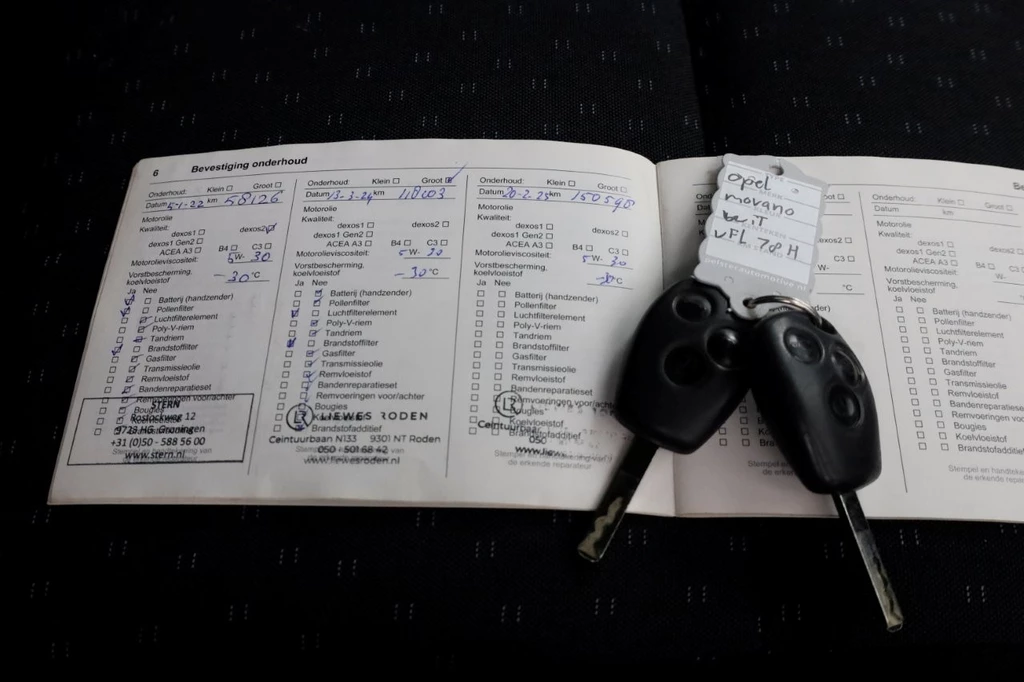 6 Bevestiging onderhoud
Onderhoud: Klein Groot
Datum 5-1-22 km 58126
Motorolie
Kwaliteit:
dexos1 dexos2
dexos1 Gen2
ACEA A3 B4 C3
Motorolieviscositeit: 5W- 30
Vorstbescherming,
koelvloeistof -30 °C
Ja Nee
Batterij (handzender)
Pollenfilter
Luchtfilterelement
Poly-V-riem
Tandriem
Brandstoffilter
Gasfilter
Transmissieolie
Remvloeistof
Bandenreparatieset
Remvoeringen voor/achter
Bougies
STERN
Rostockweg 12
9723 HG Groningen
+31 (0)50 - 588 56 00
www.stern.nl
Onderhoud: Klein Groot
Datum 13-3-24 km 118003
Motorolie
Kwaliteit:
dexos1 dexos2
dexos1 Gen2
ACEA A3 B4 C3
Motorolieviscositeit: 5W- 30
Vorstbescherming,
koelvloeistof -30 °C
Ja Nee
Batterij (handzender)
Pollenfilter
Luchtfilterelement
Poly-V-riem
Tandriem
Brandstoffilter
Gasfilter
Transmissieolie
Remvloeistof
Bandenreparatieset
Remvoeringen voor/achter
Bougies
LR LIEWES RODEN
Ceintuurbaan N133 9301 NT Roden
Brandstofadditief
050 - 501 68 42
www.liewesroden.nl
Onderhoud: Klein Groot
Datum 20-2-25 km 150590
Motorolie
Kwaliteit:
dexos1 dexos2
dexos1 Gen2
ACEA A3 B4 C3
Motorolieviscositeit: 5W- 30
Vorstbescherming,
koelvloeistof -30°C
Ja Nee
Batterij (handzender)
Pollenfilter
Luchtfilterelement
Poly-V-riem
Tandriem
Brandstoffilter
Gasfilter
Transmissieolie
Remvloeistof
Bandenreparatieset
Remvoeringen voor/achter
Bougies
LR
Koelvloeistof
Ceintuurbaan
Brandstofadditief
050
de erkende reparateur
opel
movano
VFL 78 H
dexos2
C3
W-
°C
Onderhoud: Klein
Datum km
Motorolie
Kwaliteit:
dexos1
dexos1 Gen2
ACEA A3
Motorolieviscositeit:
Vorstbescherming,
koelvloeistof
Ja Nee
Batterij (handzender)
Pollenfilter
Luchtfilterelement
Poly-V-riem
Tandriem
Brandstoffilter
Gasfilter
Transmissieolie
Remvloeistof
Bandenreparatieset
Remvoeringen
Bougies
Koelvloeistof
Brandstofadditief
de erkende reparateur